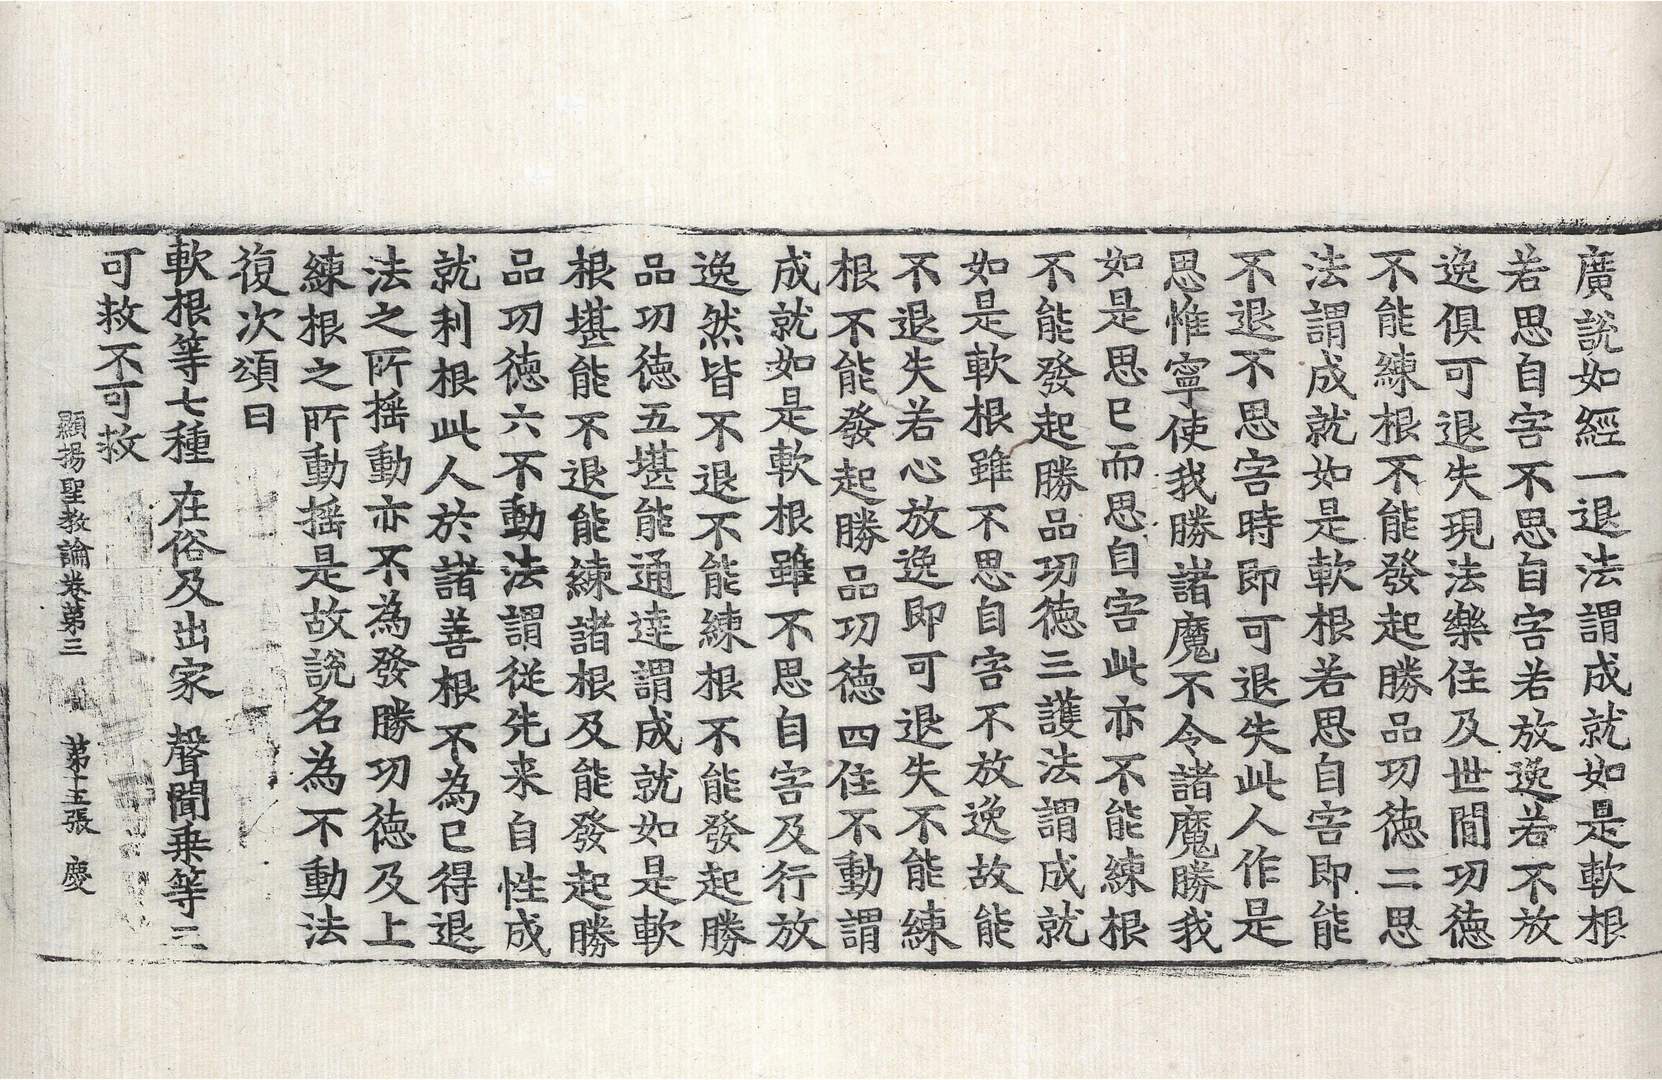 廣說如經一退法謂成就如是軟根
若思自害不思自害若放逸若不放
逸俱可退失現法樂住及世間功徳
不能練根不能發起勝品功徳二思
法謂成就如是軟根若思自害即能
不退不思害時即可退失此人作是
思惟寧使我勝諸魔不令諸魔勝我
如是思已而思自害此亦不能練根
不能發起勝品功徳三護法謂成就
如是軟根雖不思自害不放逸故能
不退失若心放逸即可退失不能練
根不能發起勝品功徳四住不動謂
成就如是軟根雖不思自害及行放
逸然皆不退不能練根不能發起勝
品功徳五堪能通達謂成就如是軟
根堪能不退能練諸根及能發起勝
品功徳六不動法謂從先来自性成
就利根此人於諸善根不為已得退
法之所揺動亦不為發勝功徳及上
練根之所動揺是故說名為不動法
復次頌曰
軟根等七種 在俗及出家 聲聞乗等三
可救不可救
顯揚聖教論卷第三 第十五張 慶